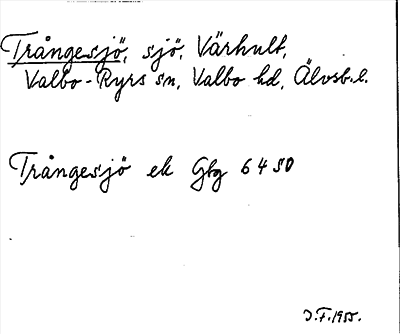 Trångesjö, sjö, Värhult,
Valbo-Ryrs sn, Valbo hd, Älvsb. l.
Trångesjö ek Gbg 6 4 SO
J.F. 1955.